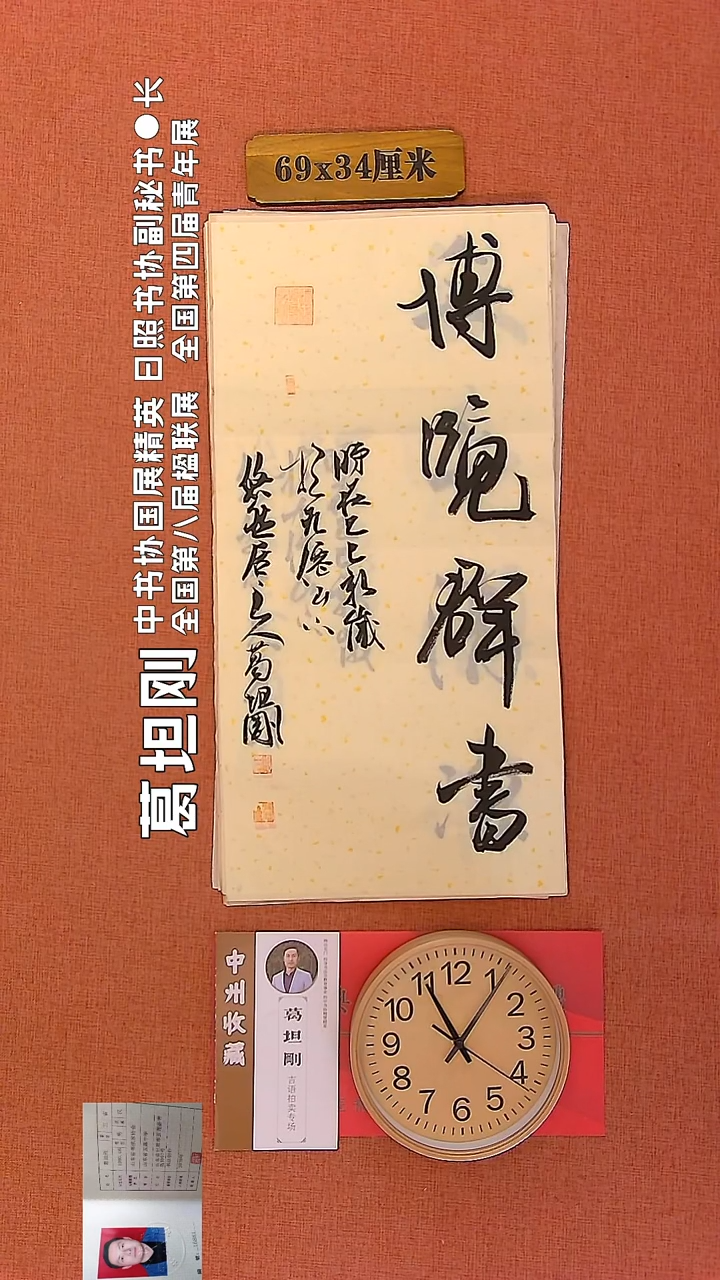 69x34厘米
中书协国展精英 日照书协副秘书●长
全国第八届楹联展 全国第四届青年展
葛坦刚
博览群書
時在乙巳秋歲
於九僊山下
悠然居主人葛坦剛
中生收藏
葛坦剛
吉语拍卖专场
12
1
2
3
4
5
6
7
8
9
10
11